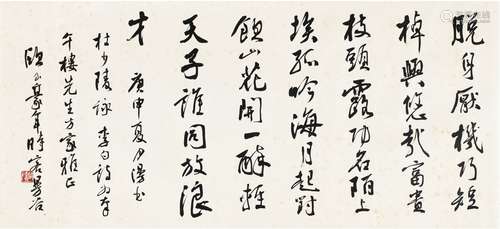 脫身厭機巧短
棹興悠哉富貴
枝頭露功名陌上
埃孤吟海月起對
飲山花開一醉輕
天子誰同放浪
才 庚申夏月漫書
杜少陵詠李白詩為奉
午樓先生方家雅正